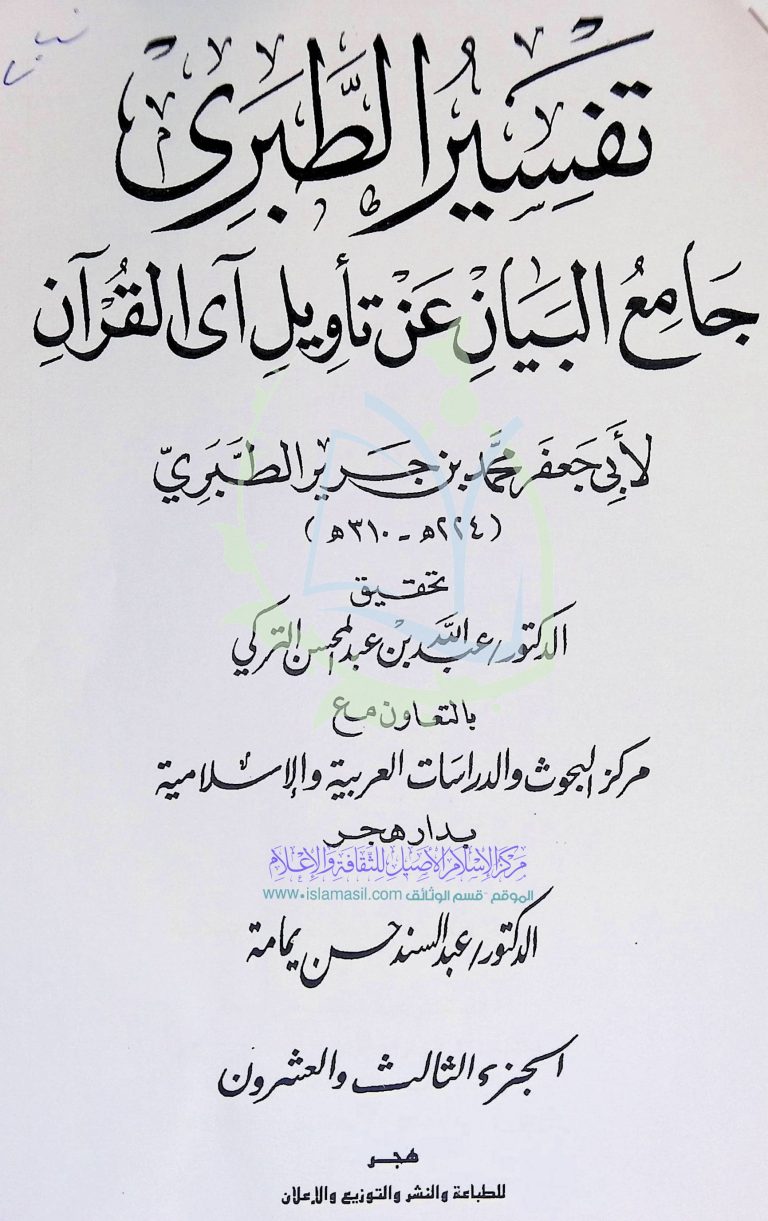 تفسير الطَّبَرِي
جَامِعُ البَيَانِ عَنْ تَأوِيلِ آى القُرْآنِ
لأَبِي جَعفَر محمَّد بن جَرير الطَّبَرِيّ
(٢٢٤هـ - ٣١٠هـ)
تحقيق
الدكتور/ عبد الله بن عبد المحسن التركي
بالتعاون مع
مركز البحوث والدراسات العربية والإسلامية
بدار هجر
مركز الإسلام الأصيل للثقافة والإعلام
الموقع - قسم الوثائق www.islamasil.com
الدكتور/ عبد السند حسن يمامة
الجزء الثالث والعشرون
هجر
للطباعة والنشر والتوزيع والإعلان